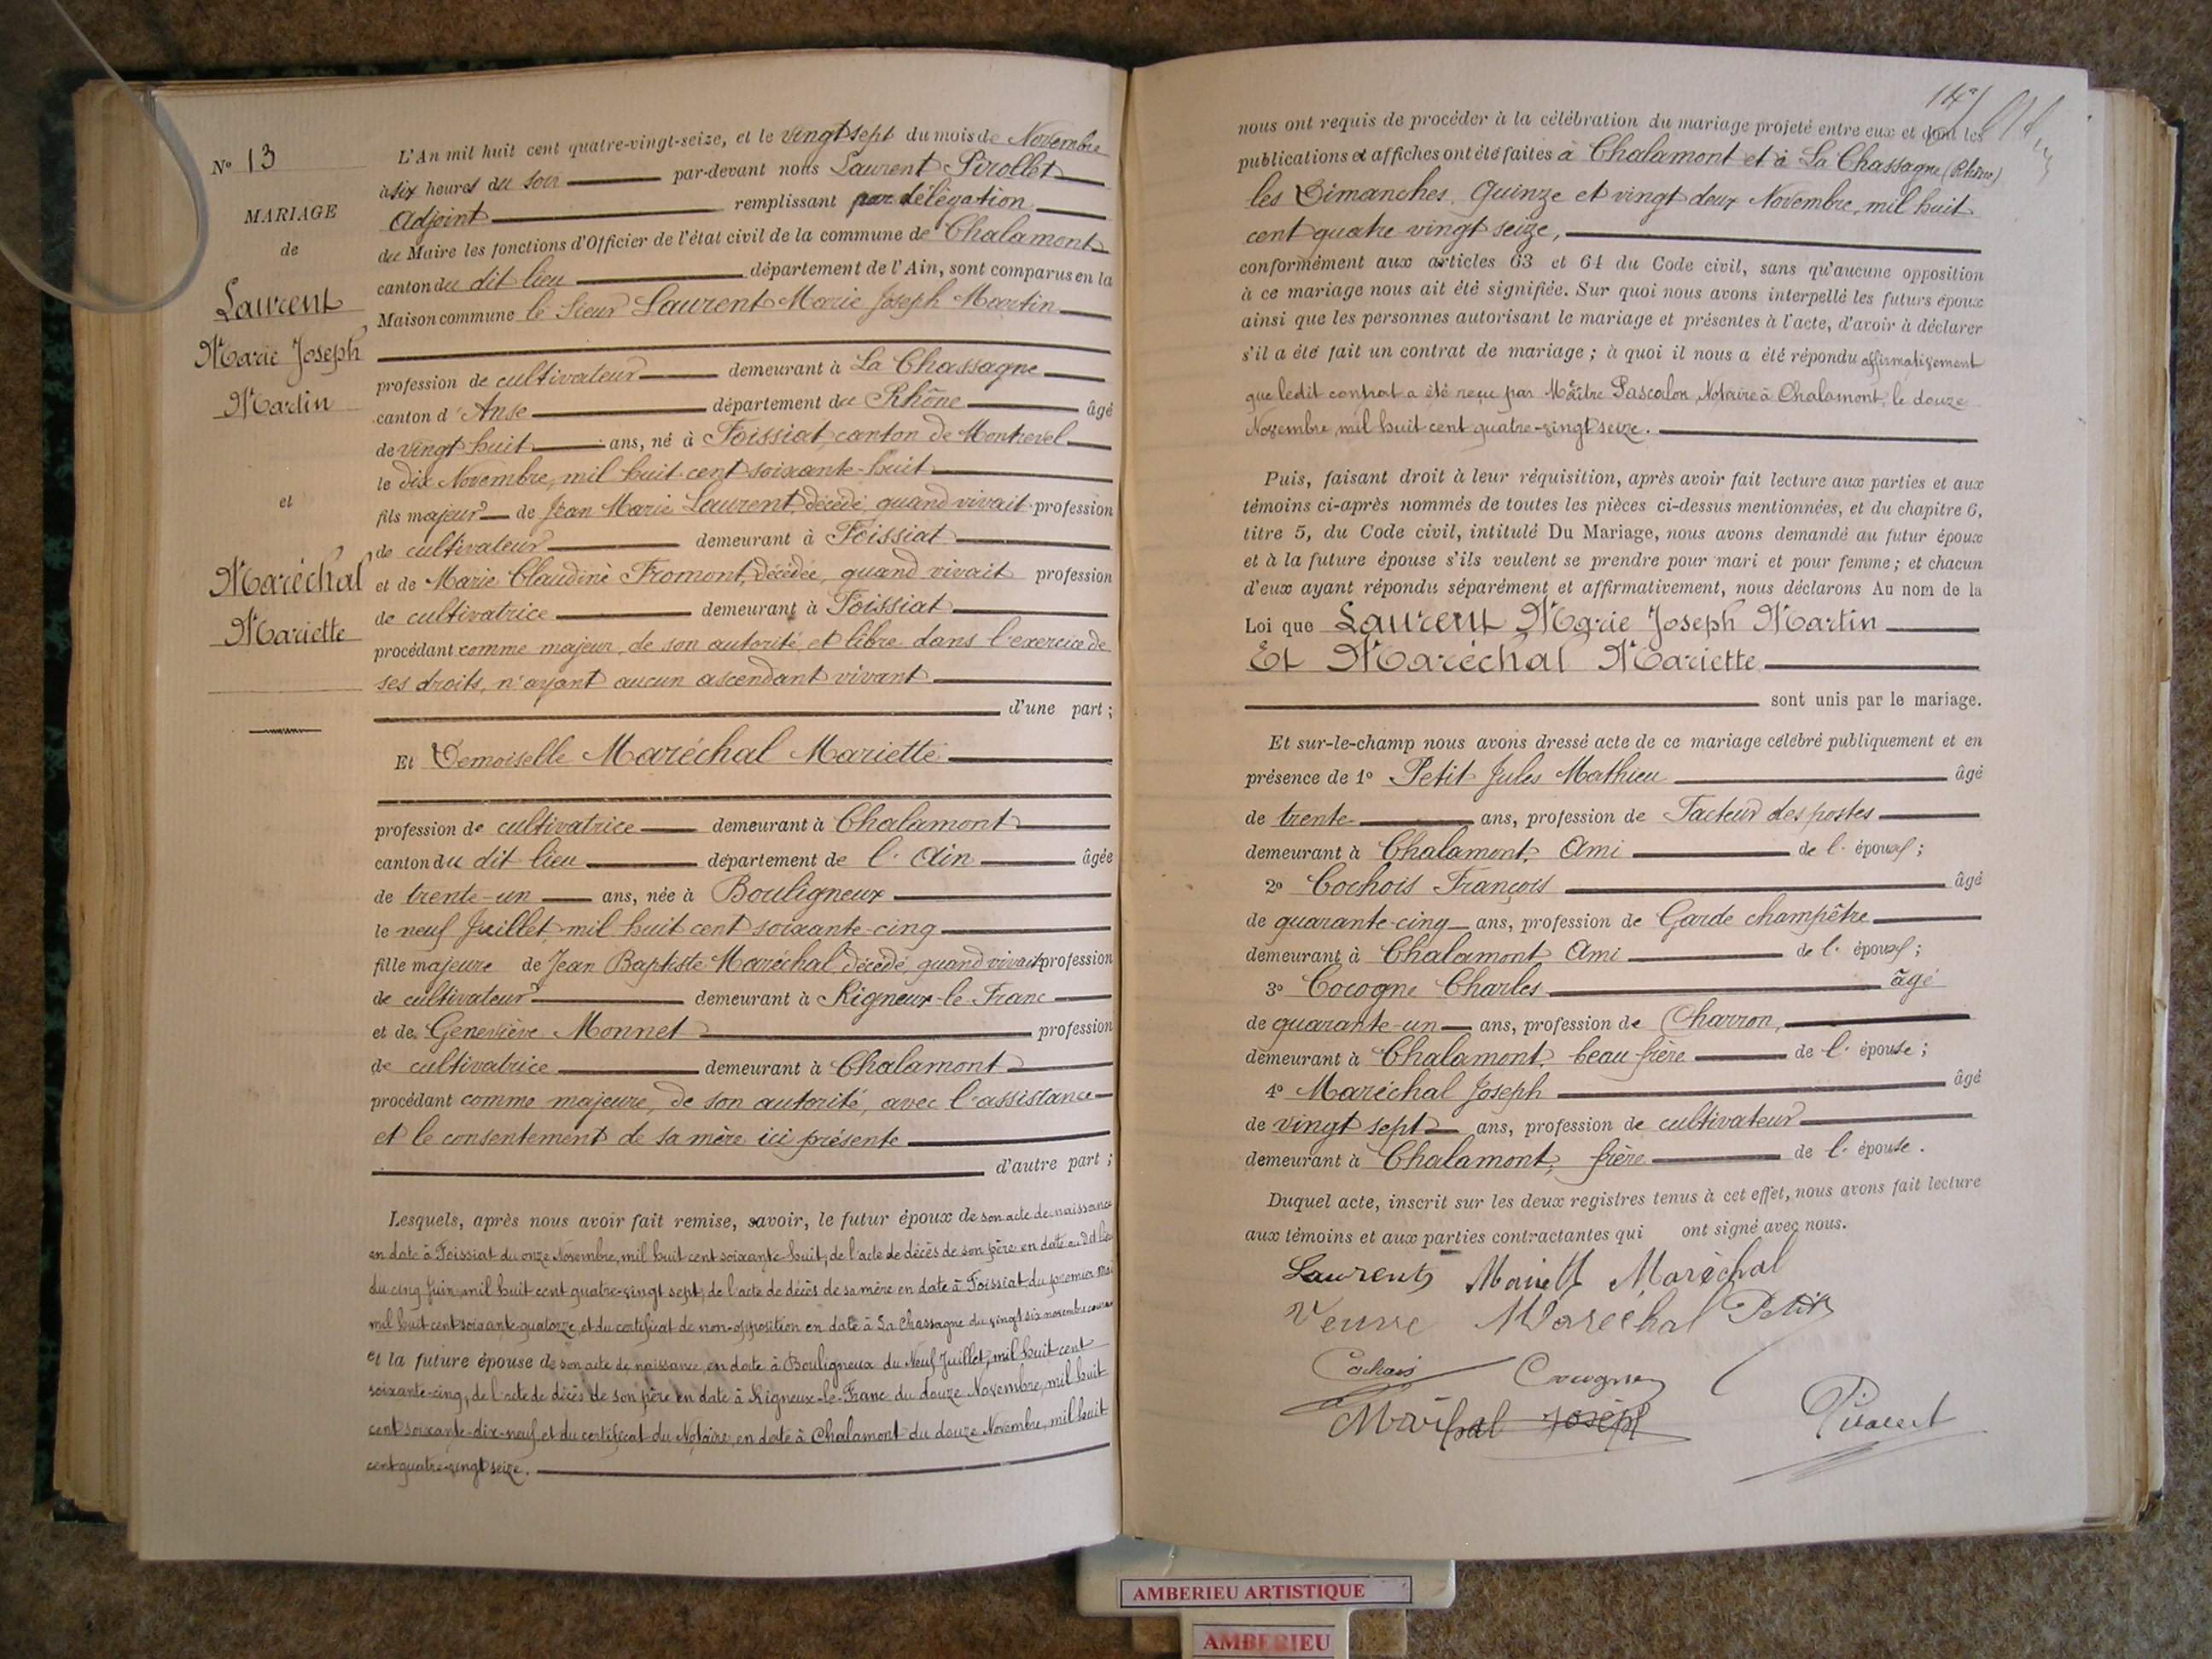 N° 13
MARIAGE
de
Laurent
Marie Joseph
Martin
et
Maréchal
Mariette
L'An mil huit cent quatre-vingt-seize, et le vingt sept du mois de Novembre
à six heures du soir par-devant nous Laurent Pirollet
Adjoint remplissant par délégation
du Maire les fonctions d'Officier de l'état civil de la commune de Chalamont
canton du dit lieu département de l'Ain, sont comparus en la
Maison commune le Sieur Laurent Marie Joseph Martin
profession de cultivateur demeurant à La Chassagne
canton d'Anse département du Rhône âgé
de vingt huit ans, né à Foissiat, canton de Montrevel
le dix Novembre, mil huit cent soixante-huit
fils majeur de Jean Marie Laurent, décédé, quand vivait profession
de cultivateur demeurant à Foissiat
et de Marie Claudine Fromont, décédée, quand vivait profession
de cultivatrice demeurant à Foissiat
procédant comme majeur, de son autorité, et libre dans l'exercice de
ses droits, n'ayant aucun ascendant vivant
d'une part ;
Et Demoiselle Maréchal Mariette
profession de cultivatrice demeurant à Chalamont
canton du dit lieu département de l'Ain âgée
de trente-un ans, née à Bouligneux
le neuf Juillet, mil huit cent soixante-cinq
fille majeure de Jean Baptiste Maréchal, décédé, quand vivait profession
de cultivateur demeurant à Rigneux-le-Franc
et de Geneviève Monnet profession
de cultivatrice demeurant à Chalamont
procédant comme majeure, de son autorité, avec l'assistance
et le consentement de sa mère ici présente
d'autre part ;
Lesquels, après nous avoir fait remise, savoir, le futur époux de son acte de naissance
en date à Foissiat du onze Novembre, mil huit cent soixante-huit, de l'acte de décès de son père en date au dit lieu
du cinq Juin, mil huit cent quatre-vingt sept, de l'acte de décès de sa mère en date à Foissiat, du premier Mai
mil huit cent soixante quatorze, et du certificat de non-opposition en date à La Chassagne du vingt six novembre courant
et la future épouse de son acte de naissance, en date à Bouligneux du Neuf Juillet, mil huit cent
soixante-cinq, de l'acte de décès de son père en date à Rigneux-le-Franc du douze Novembre, mil huit
cent soixante-dix-neuf, et du certificat du Notaire, en date à Chalamont du douze Novembre, mil huit
cent quatre-vingt seize.
14
nous ont requis de procéder à la célébration du mariage projeté entre eux et dont les
publications et affiches ont été faites à Chalamont et à La Chassagne (Rhône)
les Dimanches, Quinze et vingt deux Novembre, mil huit
cent quatre vingt seize,
conformément aux articles 63 et 64 du Code civil, sans qu'aucune opposition
à ce mariage nous ait été signifiée. Sur quoi nous avons interpellé les futurs époux
ainsi que les personnes autorisant le mariage et présentes à l'acte, d'avoir à déclarer
s'il a été fait un contrat de mariage ; à quoi il nous a été répondu affirmativement
que ledit contrat a été reçu par Maître Pascalon, Notaire à Chalamont, le douze
Novembre, mil huit cent quatre-vingt seize.
Puis, faisant droit à leur réquisition, après avoir fait lecture aux parties et aux
témoins ci-après nommés de toutes les pièces ci-dessus mentionnées, et du chapitre 6,
titre 5, du Code civil, intitulé Du Mariage, nous avons demandé au futur époux
et à la future épouse s'ils veulent se prendre pour mari et pour femme ; et chacun
d'eux ayant répondu séparément et affirmativement, nous déclarons Au nom de la
Loi que Laurent Marie Joseph Martin
Et Maréchal Mariette
sont unis par le mariage.
Et sur-le-champ nous avons dressé acte de ce mariage célébré publiquement et en
présence de 1° Petit Jules Mathieu âgé
de trente ans, profession de Facteur des postes
demeurant à Chalamont, Ami de l'époux ;
2° Cochois François âgé
de quarante-cinq ans, profession de Garde champêtre
demeurant à Chalamont Ami de l'époux ;
3° Cocogne Charles âgé
de quarante-un ans, profession de Charron,
demeurant à Chalamont, beau frère de l'épouse ;
4° Maréchal Joseph âgé
de vingt sept ans, profession de cultivateur
demeurant à Chalamont, frère de l'épouse.
Duquel acte, inscrit sur les deux registres tenus à cet effet, nous avons fait lecture
aux témoins et aux parties contractantes qui ont signé avec nous.
Laurent Mariette Maréchal
Veuve Maréchal Petit
Cochois Cocogne
Maréchal Joseph Pirollet
AMBERIEU ARTISTIQUE
AMBERIEU